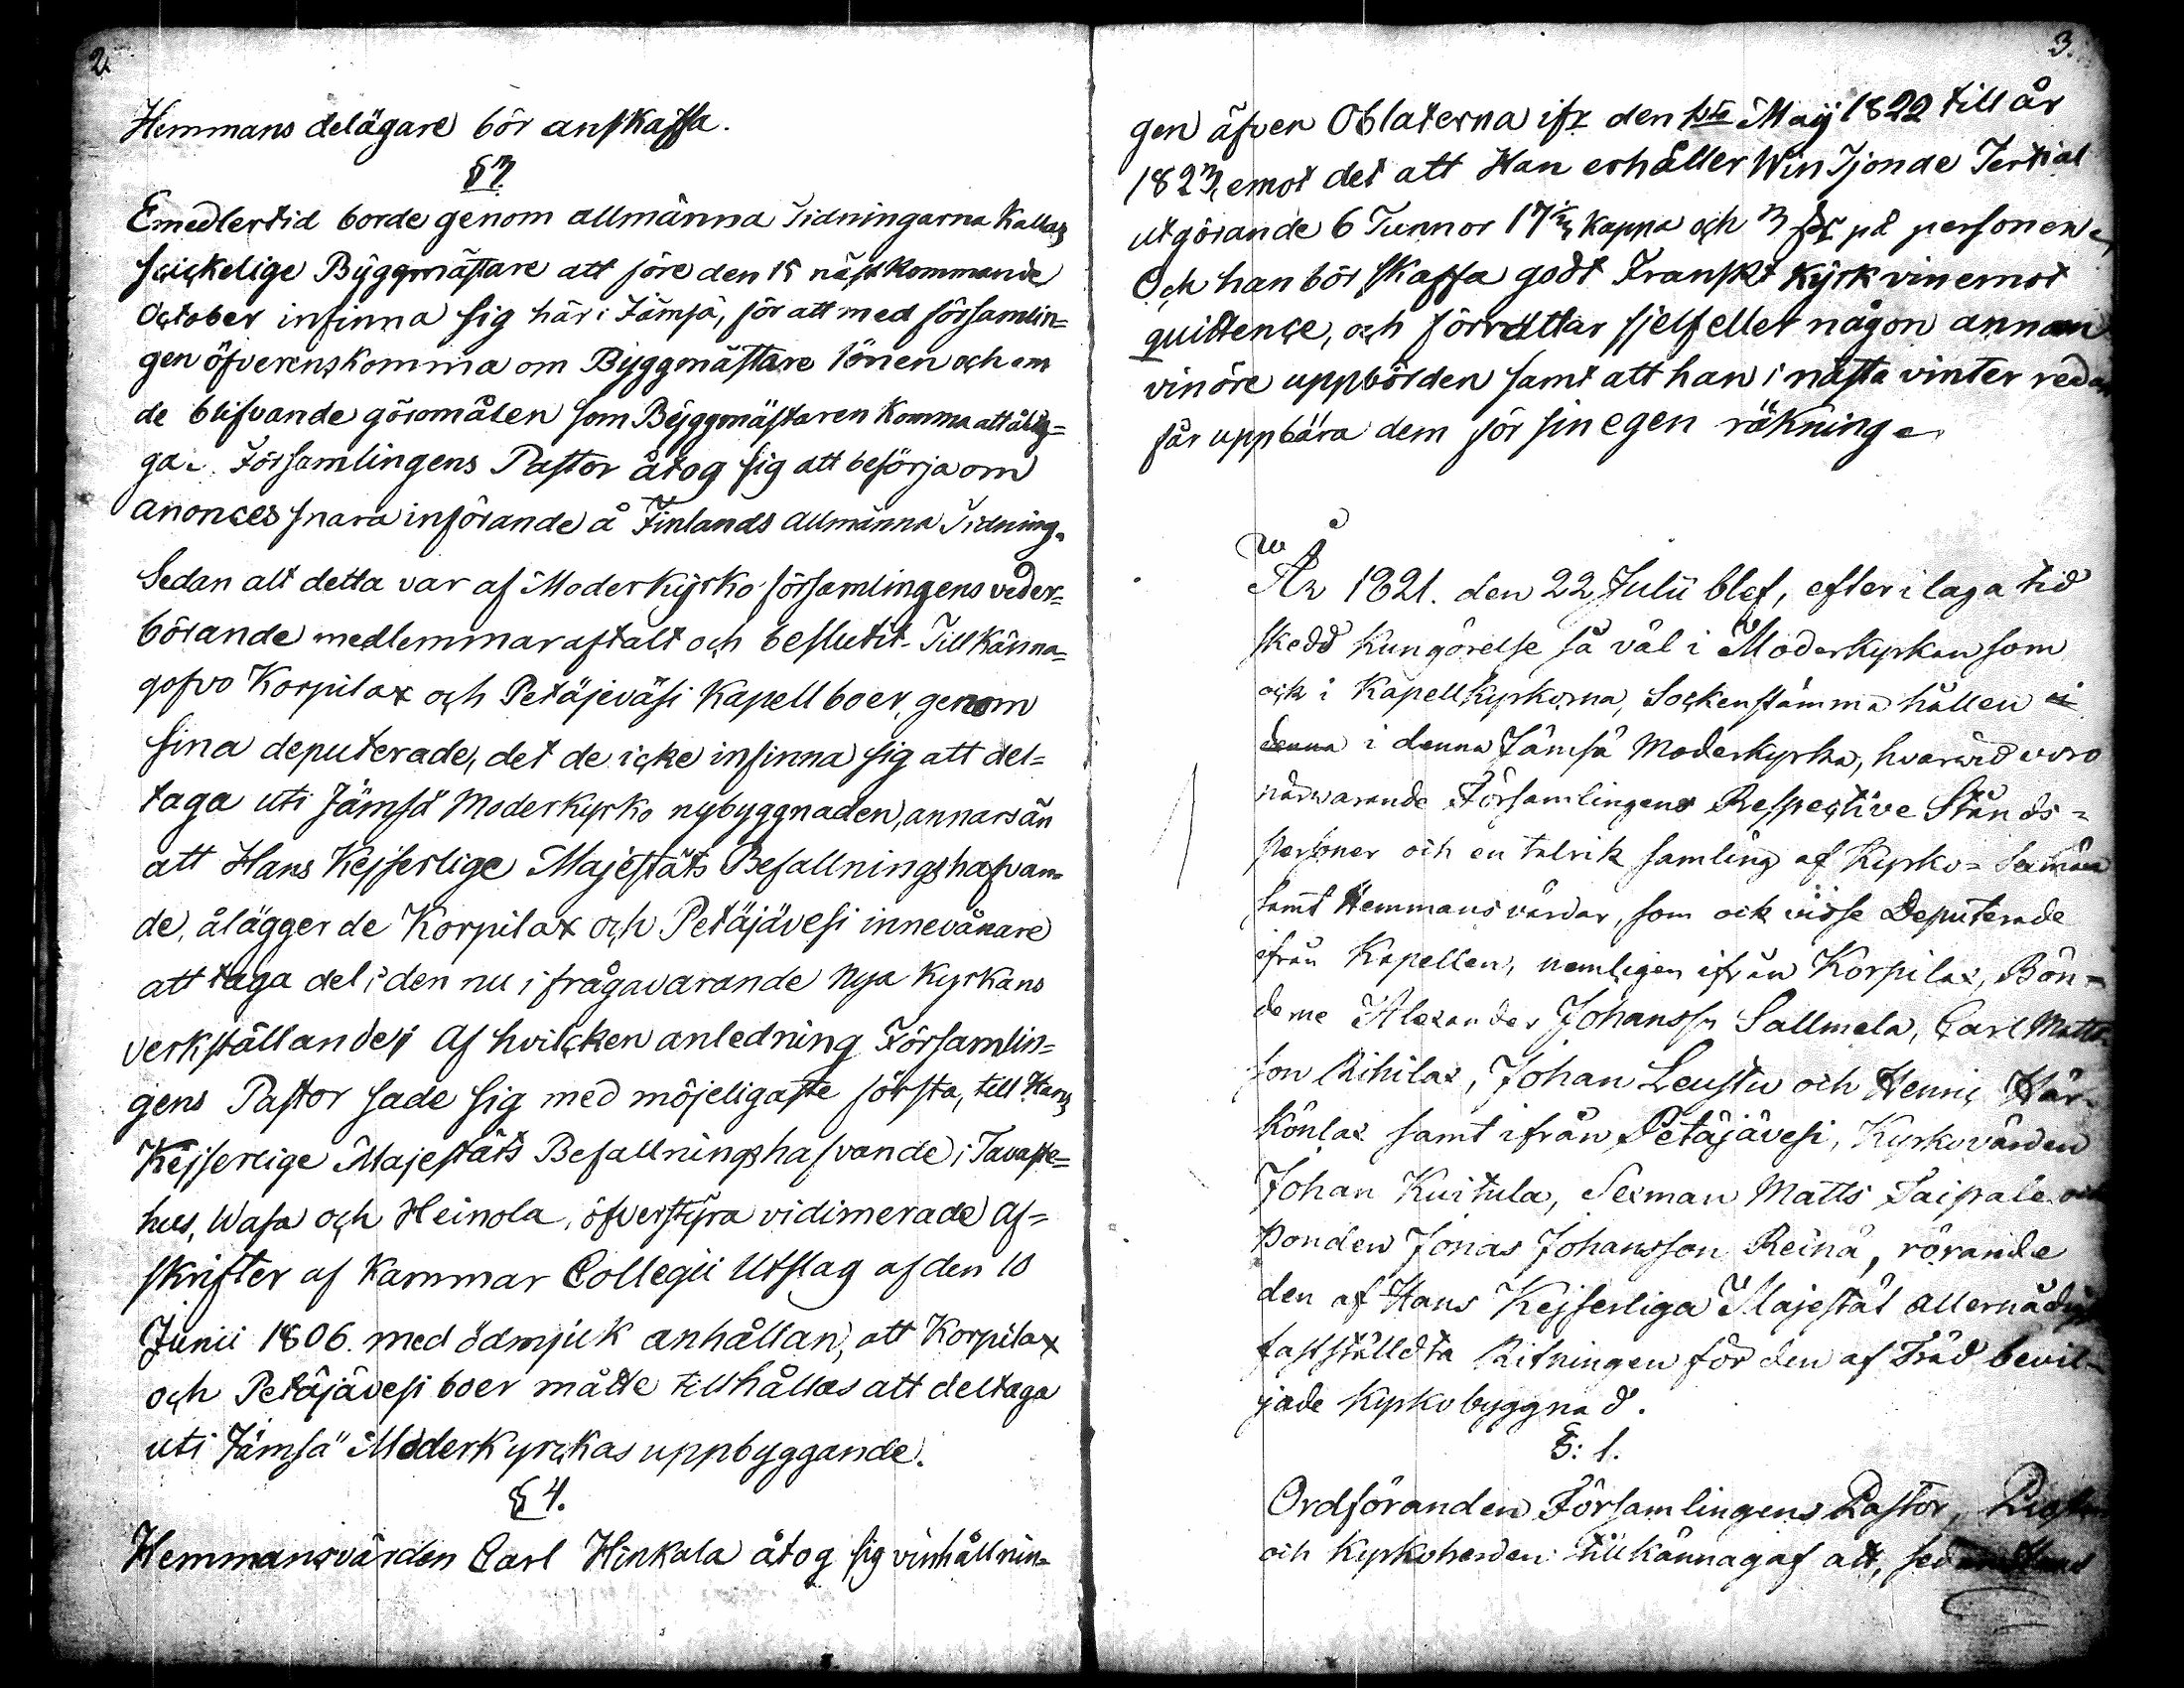 2.
Hemmans delägare bör anskaffa.
§ 3.
Emedlertid borde genom allmänna Tidningarna Kallas
skickelige Byggmästare att före den 15 nästkommande
October infinna sig här i Jämsä, för att med församlin=
gen öfverenskomma om Byggmästare lönen och om
de blifvande göromålen som Byggmästaren Komma att ålig=
ga. Församlingens Pastor åtog sig att besörja om
anonces snara införande å Finlands Allmänna Tidning.
Sedan alt detta var af Moderkyrko församlingens veder=
börande medlemmar aftalt och beslutit Till Känna=
gofvo Korpilax och Petäjeväsi Kapellboer, genom
sina deputerade, det de icke infinna sig att del=
taga uti Jämsä Moderkyrko nybyggnaden, annars än
att Hans Kejserlige Majestäts Befallningshafvan=
de, ålägger de Korpilax och Petäjävesi innevånare
att taga del i den nu i frågavarande Nya Kyrkans
verkställande; Af hvilcken anledning Församlin=
gens Pastor sade sig med möjeligaste första, till Hans
Kejserlige Majestäts Befallningshafvande i Tavaste=
hus, Wasa och Heinola, öfverstyra vidimerade Af=
skrifter af Kammar Collegii Utslag af den 10
Junii 1806. med ödmjuk anhållan, att Korpilax
och Petäjävesi boer måtte tillhållas att deltaga
uti Jämsä Moderkyrckas uppbyggande.
§ 4.
Hemmansvärden Carl Hinkala åtog sig vinhållnin=
3.
gen äfven Oblaterna ifr den 1sta Maij 1822 till år
1823, emot det att Han erhåller Win Tjonde Tertial
utgörande 6 Tunnor 17 Kappa och 3 på personen,
Och han bör skaffa godt Franskt Kyrkvin emot
quittence, och förrättar sjelf eller någon annan
vinöre uppbörden samt att han i nästa vinter redan
får uppbära dem för sin egen räkning.
År 1821. den 22 Julii blef, efter i laga tid
skedd kungörelse så väl i Moderkyrkan som
ock i Kapellkyrkorna, Sockenstämma hållen i
denna i denna Jämsä Moderkyrka, hvarvid voro
närwarande Församlingens Respective Stånds=
personer och en talrik samling af Kyrko= Sexmän
samt Hemmansvärdar, som ock visse Deputerade
ifrån Kapellen, nemligen ifrån Korpilax, Bön=
derne Alexander Johansson Sallmela, Carl Matts=
son Rihilax, Johan Leustu och Henric Här=
könlax samt ifrån Petäjävesi, Kyrkovärden
Johan Kuitula, Sexman Matts Saipale och
Bonden Jonas Johansson Reinä, rörande
den af Hans Kejserliga Majestät allernådigst
fastställdta Ritningen för den af Träd bevil=
jade Kyrkobyggnad.
§: 1.
Ordföranden Församlingens Pastor, Prosten
och Kyrkoherden tillkännagaf att, sedan Hans